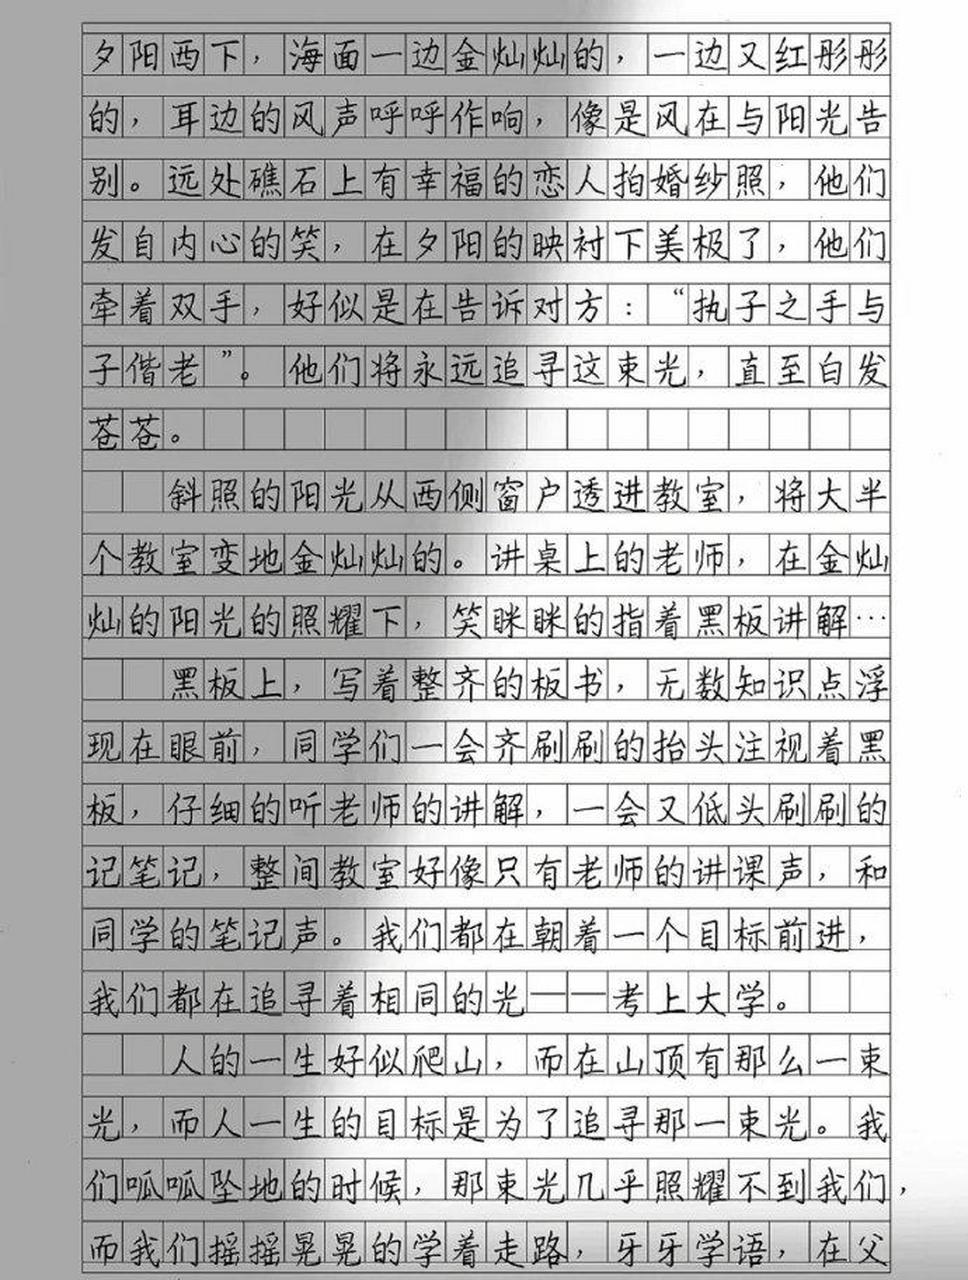 夕阳西下，海面一边金灿灿的，一边又红彤彤
的，耳边的风声呼呼作响，像是风在与阳光告
别。远处礁石上有幸福的恋人拍婚纱照，他们
发自内心的笑，在夕阳的映衬下美极了，他们
牵着双手，好似是在告诉对方：“执子之手与
子偕老”。他们将永远追寻这束光，直至白发
苍苍。
斜照的阳光从西侧窗户透进教室，将大半
个教室变地金灿灿的。讲桌上的老师，在金灿
灿的阳光的照耀下，笑眯眯的指着黑板讲解…
黑板上，写着整齐的板书，无数知识点浮
现在眼前，同学们一会齐刷刷的抬头注视着黑
板，仔细的听老师的讲解，一会又低头刷刷的
记笔记，整间教室好像只有老师的讲课声，和
同学的笔记声。我们都在朝着一个目标前进，
我们都在追寻着相同的光——考上大学。
人的一生好似爬山，而在山顶有那么一束
光，而人一生的目标是为了追寻那一束光。我
们呱呱坠地的时候，那束光几乎照耀不到我们，
而我们摇摇晃晃的学着走路，牙牙学语，在父